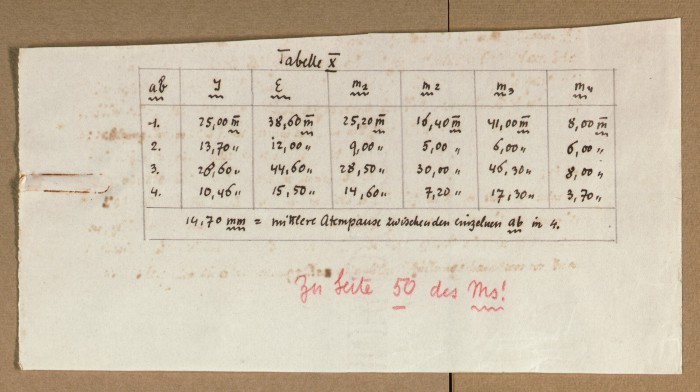 Tabelle X
ab J E m1 m2 m3 m4
1. 25,00 m 38,60 m 25,20 m 16,40 m 41,00 m 8,00 m
2. 13,70 " 12,00 " 9,00 " 5,00 " 6,00 " 6,00 "
3. 26,60 " 44,60 " 28,50 " 30,00 " 46,30 " 8,00 "
4. 10,46 " 15,50 " 14,60 " 7,20 " 17,30 " 3,70 "
14,70 mm = mittlere Atempause zwischen den einzelnen ab in 4.
Zu Seite 50 des Ms!